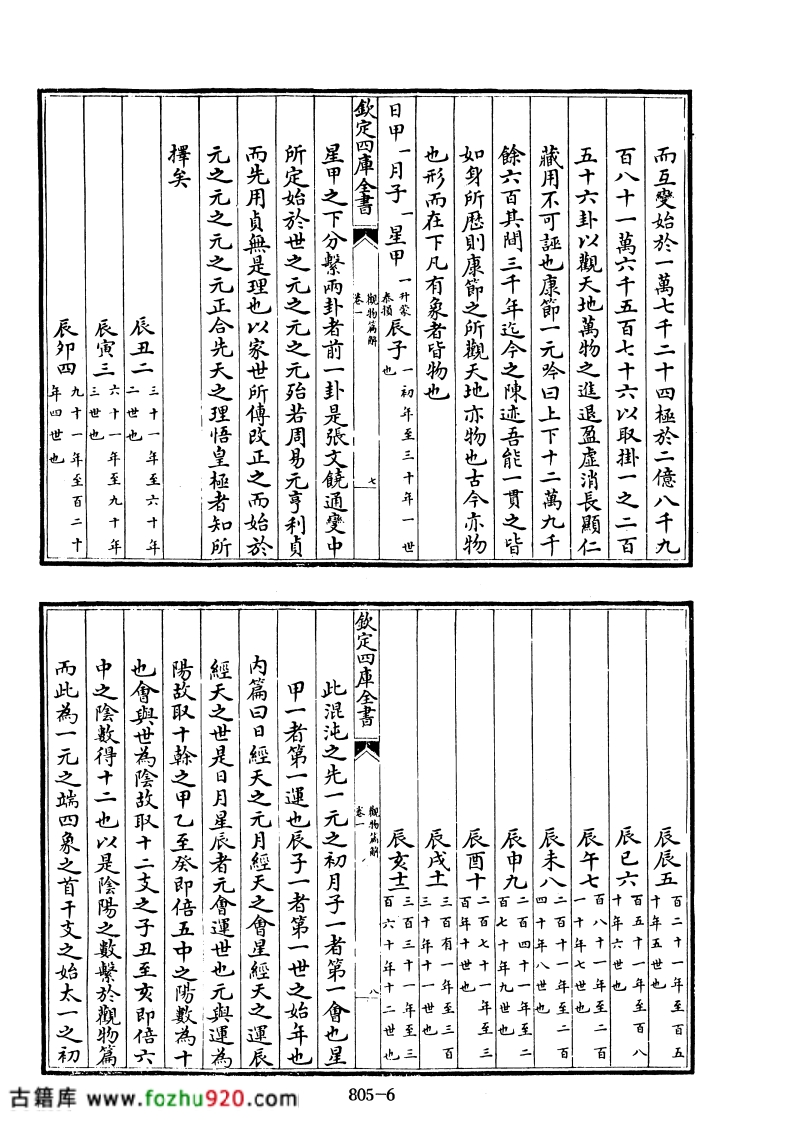 而互變始於一萬七千二十四極於二億八千九
百八十一萬六千五百七十六以取掛一之二百
五十六卦以觀天地萬物之進退盈虛消長顯仁
藏用不可誣也康節一元吟曰上下十二萬九千
餘六百其間三千年迄今之陳迹吾能一貫之皆
如身所歷則康節之所觀天地亦物也古今亦物
也形而在下凡有象者皆物也
日甲一月子一星甲一升蒙泰損辰子一初年至三十年一世也
欽定四庫全書
觀物篇解
卷一
七
星甲之下分繫兩卦者前一卦是張文饒通變中
所定始於世之元之元之元殆若周易元亨利貞
而先用貞無是理也以家世所傳改正之而始於
元之元之元之元正合先天之理悟皇極者知所
擇矣
辰丑二三十一年至六十年二世也
辰寅三六十一年至九十年三世也
辰卯四九十一年至百二十年四世也
辰辰五百二十一年至百五十年五世也
辰巳六百五十一年至百八十年六世也
辰午七百八十一年至二百一十年七世也
辰未八二百十一年至二百四十年八世也
辰申九二百四十一年至二百七十年九世也
辰酉十二百七十一年至三百年十世也
辰戌十一三百有一年至三百三十年十一世也
辰亥十二三百三十一年至三百六十年十二世也
欽定四庫全書
觀物篇解
卷一
八
此混沌之先一元之初月子一者第一會也星
甲一者第一運也辰子一者第一世之始年也
内篇曰日經天之元月經天之會星經天之運辰
經天之世是日月星辰者元會運世也元與運為
陽故取十榦之甲乙至癸即倍五中之陽數為十
也會與世為陰故取十二支之子丑至亥即倍六
中之陰數得十二也以是陰陽之數繫於觀物篇
而此為一元之端四象之首干支之始太一之初
805-6
古籍库 www.fozhu920.com